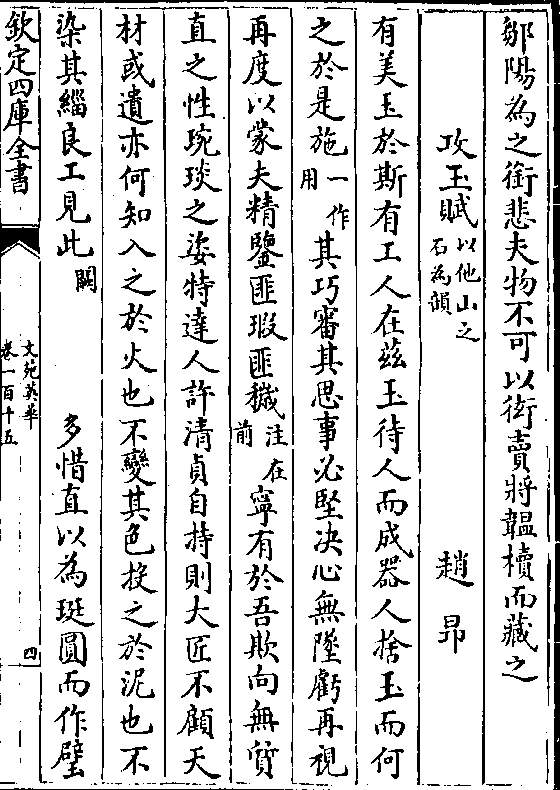 鄒陽為之銜悲夫物不可以衒賣將韞櫝而藏之
攻玉賦以他山之石為韻 趙昂
有美玉於斯有工人在茲玉待人而成器人捨玉而何
之於是施一作用其巧審其思事必堅決心無墜虧再視
再度以蒙夫精鑒匪瑕匪穢注在前寧有於吾欺向無質
直之性琬琰之姿特達人許清貞自持則大匠不顧天
材或遺亦何知入之於火也不變其色投之於泥也不
染其緇良工見此闕 多惜直以為珽圓而作璧
欽定四庫全書
文苑英華
卷一百十五
四